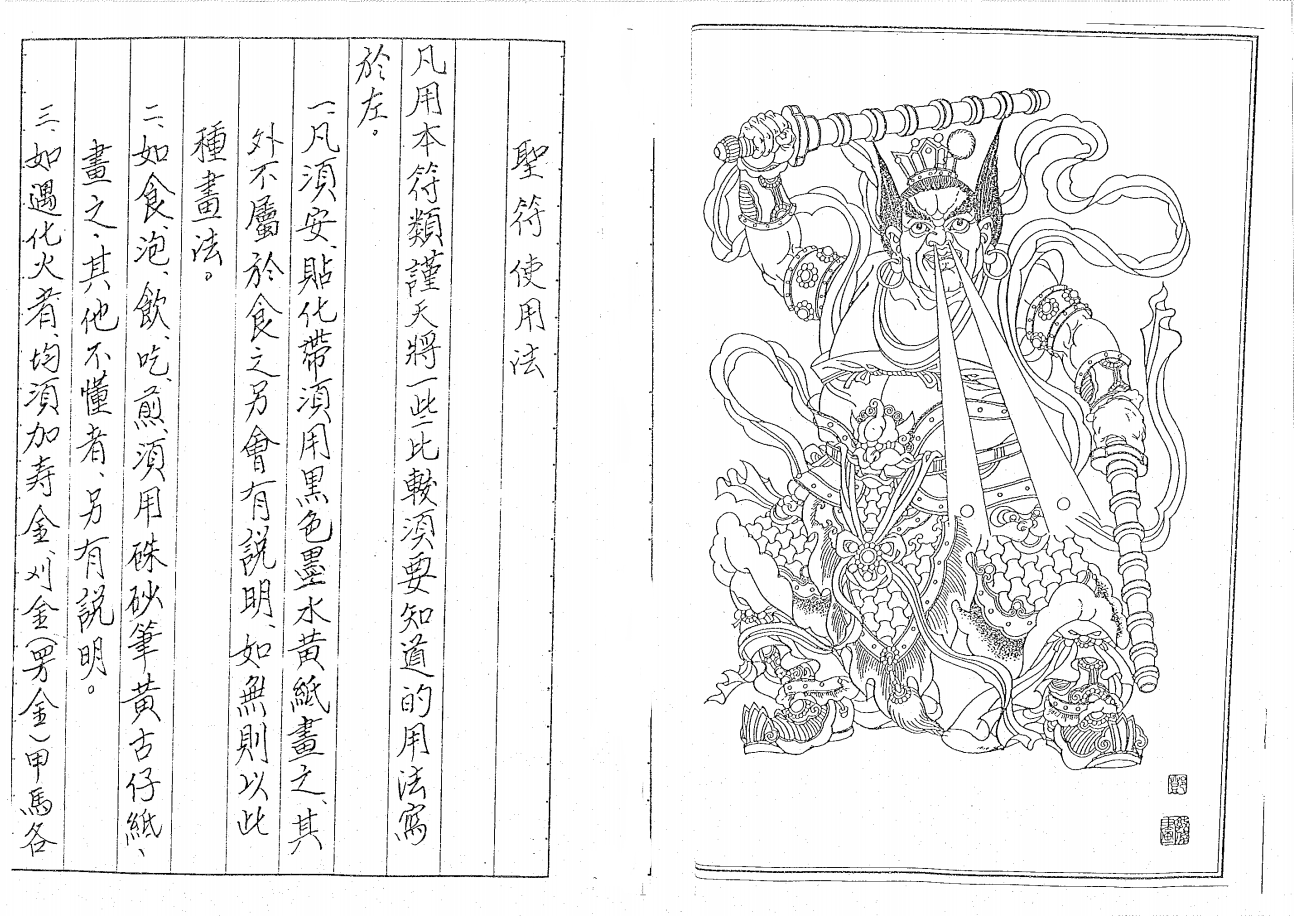 聖符使用法
凡用本符類謹天將一些比較須要知道的用法寫
於左。
一、凡須安、貼化帶須用黑色墨水黃紙畫之、其
外不屬於食之另會有說明、如無則以此
種畫法。
二、如食、泡、飲、吃、煎、須用硃砂筆黃古仔紙、
畫之、其他不懂者、另有說明。
三、如遇化火者、均須加寿金、刈金(男金)甲馬各